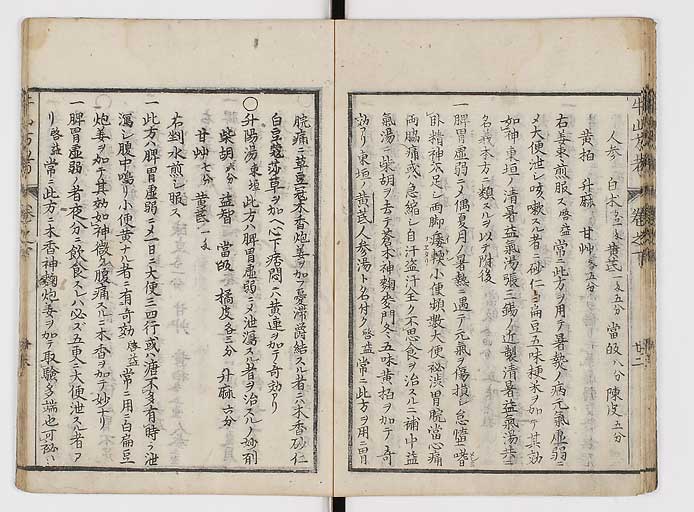 人参 白朮 黄芪一戔五分 當皈八分 陳皮五分
黄柏 升麻 甘艸各五分
右姜棗煎服ス 啓益常ニ此方ヲ用テ暑熱ノ病元氣虚弱ニ
メ大便泄シ咳嗽スル者ニ砂仁 白扁豆五味梗米ヲ加テ其効
如神東垣ノ清暑益氣湯張三錫ノ近製清暑益氣湯共ニ
名義本方ニ類スルヲ以テ附後
一脾胃虚弱ニメ偶夏月ノ暑熱ニ遇テ元氣ヲ傷損メ怠惰嗜
臥精神不足シ両脚痿軟小便頻數大便秘渋胃脘當心痛
両脇痛或ハ急縮シ自汗盗汗全ク不思食ヲ治スルニ補中益
氣湯ニ柴胡ヲ去テ蒼朮神麯麥門冬五味黄柏ヲ加テ奇
効アリ東垣ノ黄芪人参湯ト名付ク啓益常ニ此方ヲ用ニ胃
脘痛ニ草豆冦木香炮姜ヲ加フ憂滞欝結スル者ニハ木香砂仁
白豆蔻莎草ヲ加ヘ心下痞悶ニハ黄連ヲ加テ奇効アリ
○升陽湯 東垣 此方ハ脾胃虚弱ニメ泄瀉スル者ヲ治スルノ妙剤
柴胡 六分 益智 當皈 橘皮各三分 升麻六分
甘艸七分 黄芪一戔
右剉水煎シ服ス
一此方ハ脾胃虚弱ニメ一日ニ大便三四行或ハ溏不多有時テ泄
瀉シ腹中鳴リ小便黄ナル者ニ有奇効啓益常ニ用ニ白扁豆
炮姜ヲ加テ其効如神微々腹痛スルニ木香ヲ加テ妙ナリ
一脾胃虚弱ノ者夜分ニ飲食スレハ必ズ五更ニ大便泄スル者ア
リ啓益常ニ此方ニ木香神麯炮姜ヲ加テ取驗多端也可秘
卷之下
廿二